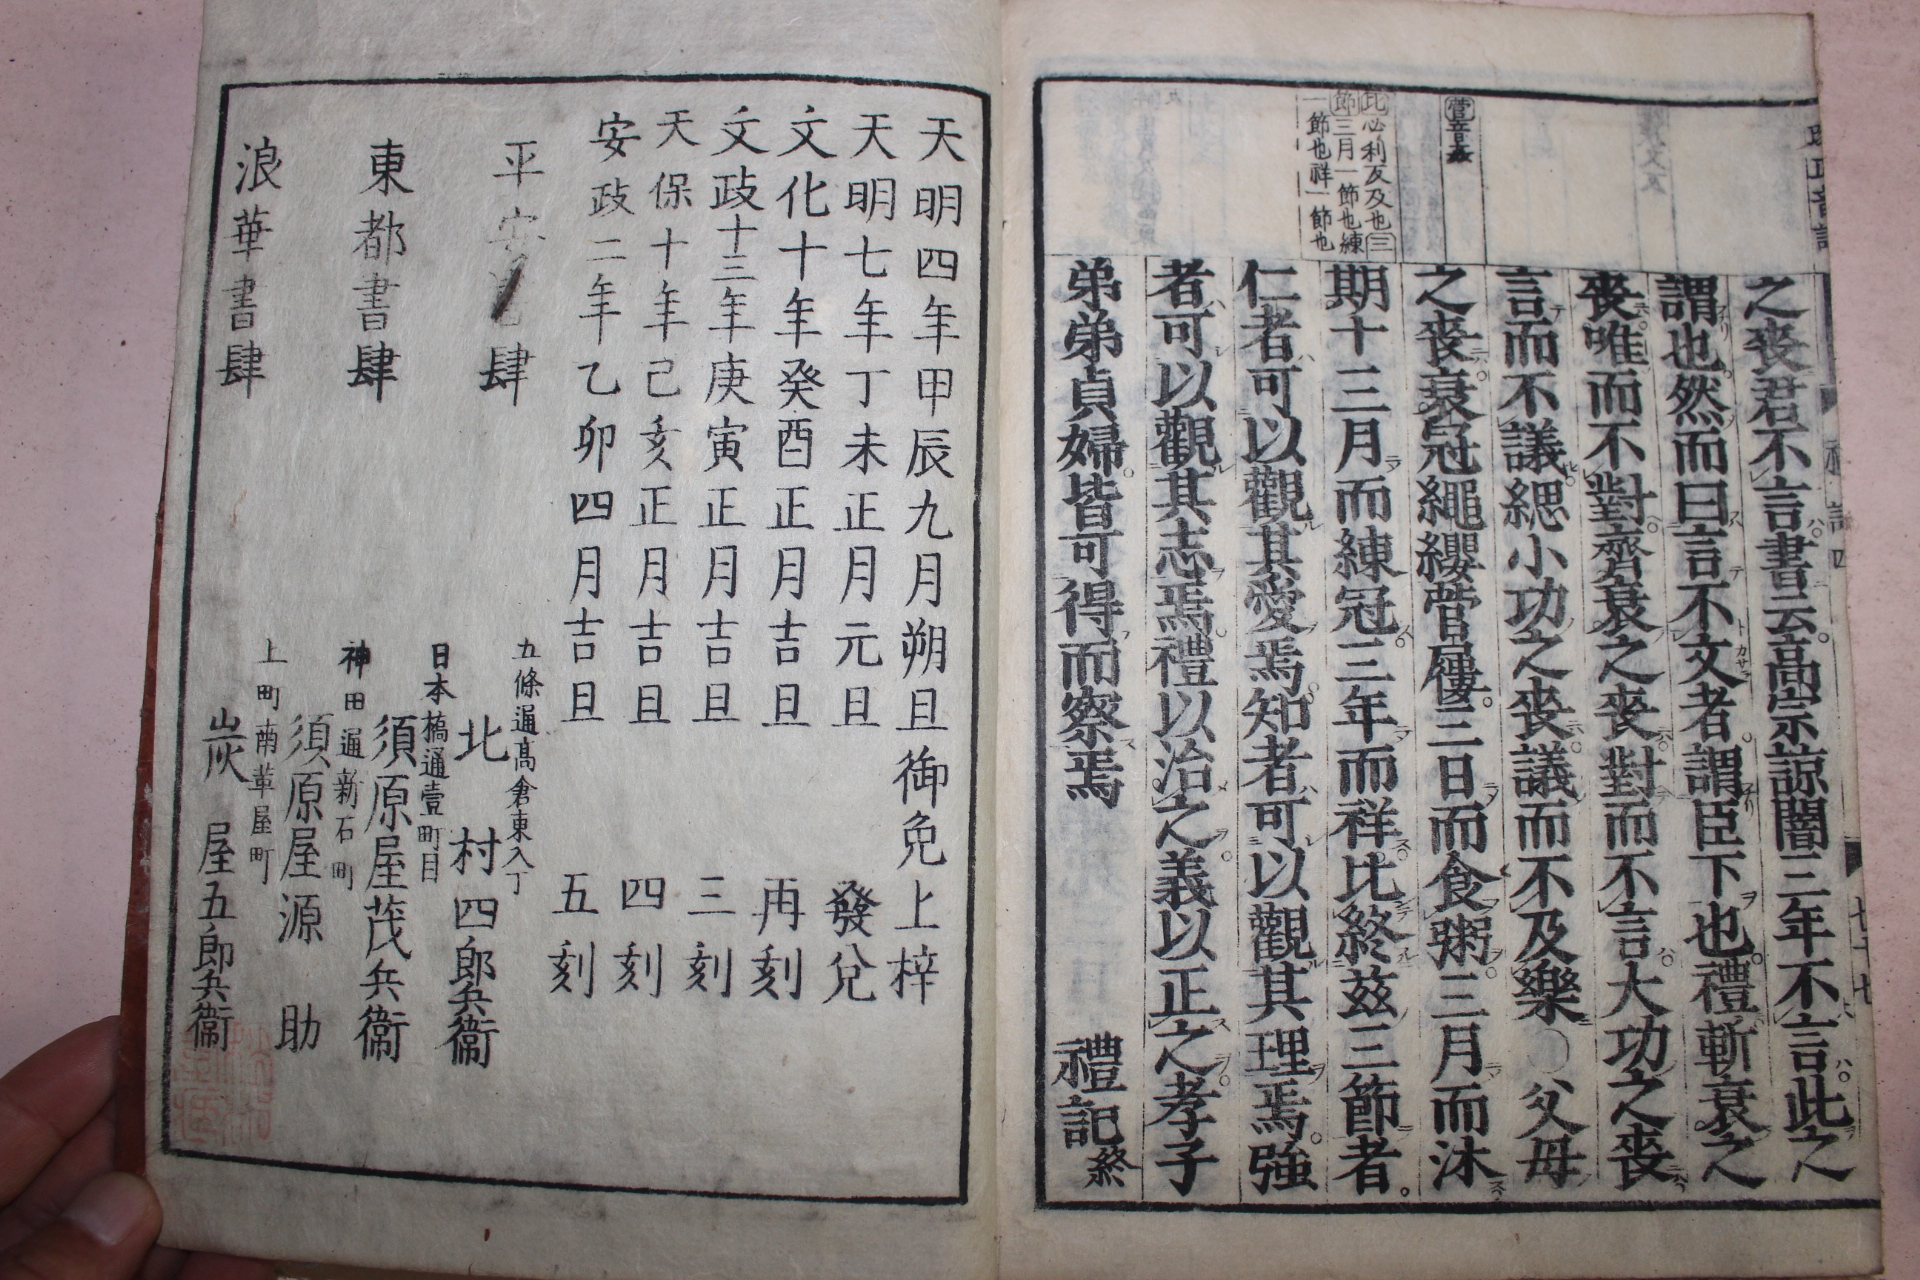 之喪君不言書云高宗諒闇三年不言此之
謂也然而曰言不文者謂臣下也禮斬衰之
喪唯而不對齊衰之喪對而不言大功之喪
言而不議緦小功之喪議而不及樂〇父母
之喪衰冠繩纓菅屨三日而食粥三月而沐
期十三月而練冠三年而祥比終茲三節者
仁者可以觀其愛焉知者可以觀其理焉強
者可以觀其志焉禮以治之義以正之孝子
弟弟貞婦皆可得而察焉
禮記終
菅音姦
比必利反及也三
節三月一節也練
一節也祥一節也
天明四年甲辰九月朔旦御免上梓
天明七年丁未正月元旦 發兌
文化十年癸酉正月吉旦 再刻
文政十三年庚寅正月吉旦 三刻
天保十年己亥正月吉旦 四刻
安政二年乙卯四月吉旦 五刻
平安書肆
五條通高倉東入丁
北村四郎兵衞
東都書肆
日本橋通壹町目
須原屋茂兵衞
神田通新石町
須原屋源助
浪華書肆
上町南革屋町
炭屋五郎兵衞